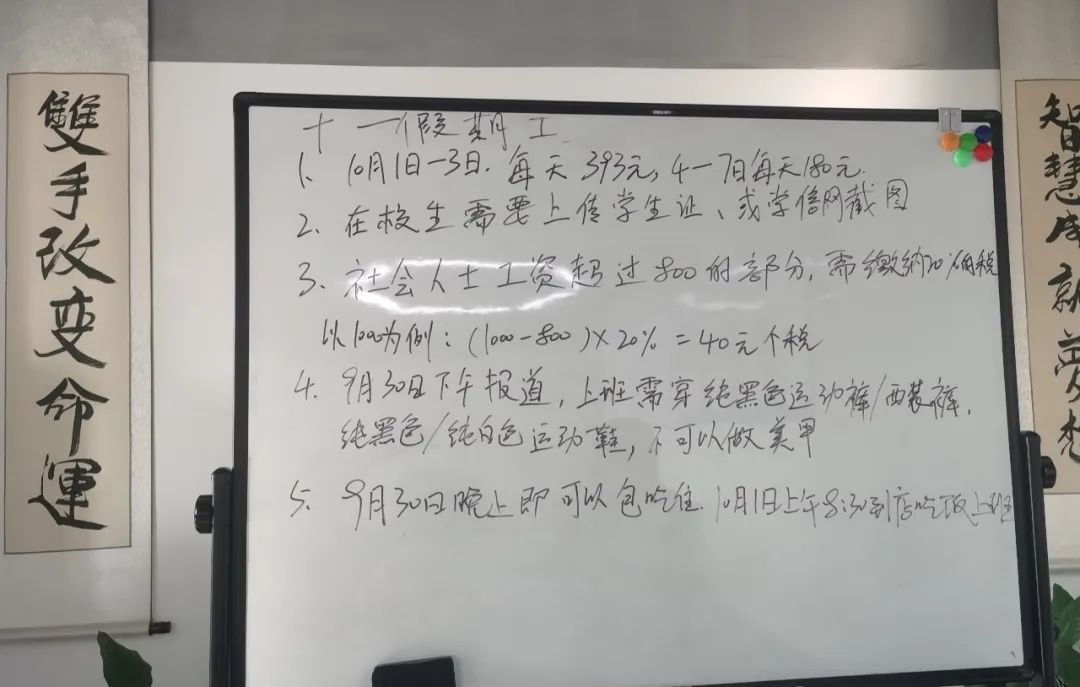 雙手改變命運
十一假期工
1、10月1日-3日,每天393元,4-7日每天180元.
2、在校生需要上传学生证、或学信网截图
3、社会人士工资超过800的部分,需缴纳20%个税
以1000为例:(1000-800)×20%=40元个税
4、9月30日下午报道,上班需穿纯黑色运动裤/西装裤,
纯黑色/纯白色运动鞋,不可以做美甲
5、9月30日晚上即可以包吃住.10月1日上午8:30到店吃饭上班
智慧成就夢想